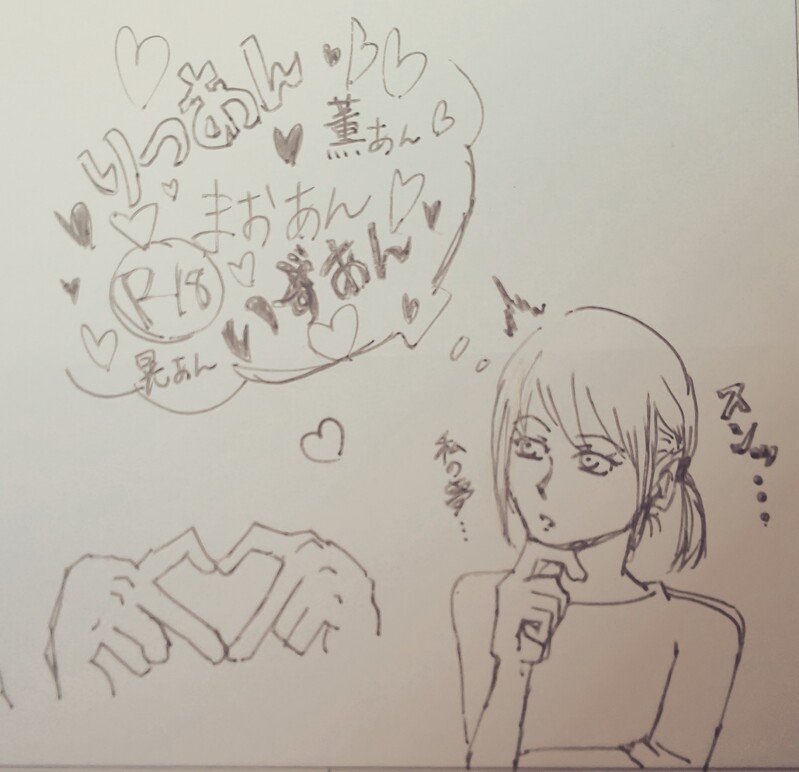 りつあん
薫あん
まおあん
R-18
いずあん
晃あん
私の夢…
スンッ…